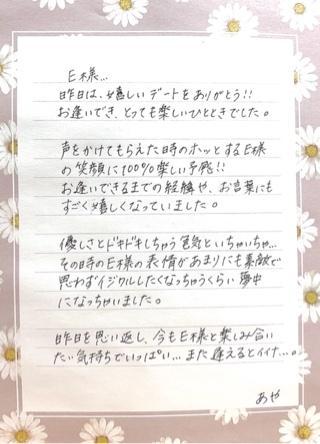 E様…
昨日は、嬉しいデートをありがとう!!
お逢いでき、とっても楽しいひとときでした。
声をかけてもらえた時のホッとするE様
の笑顔に100%楽しい予感!!
お逢いできるまでの経緯や、お言葉にも
すごく嬉しくなっていました。
優しさとドキドキしちゃう色気といちゃいちゃ…
その時のE様の表情があまりにも素敵で
思わずイジワルしたくなっちゃうくらい夢中
になっちゃいました。
昨日を思い返し、今もE様と楽しみ合い
たい気持ちでいっぱい…また逢えるとイイナ…。
あや